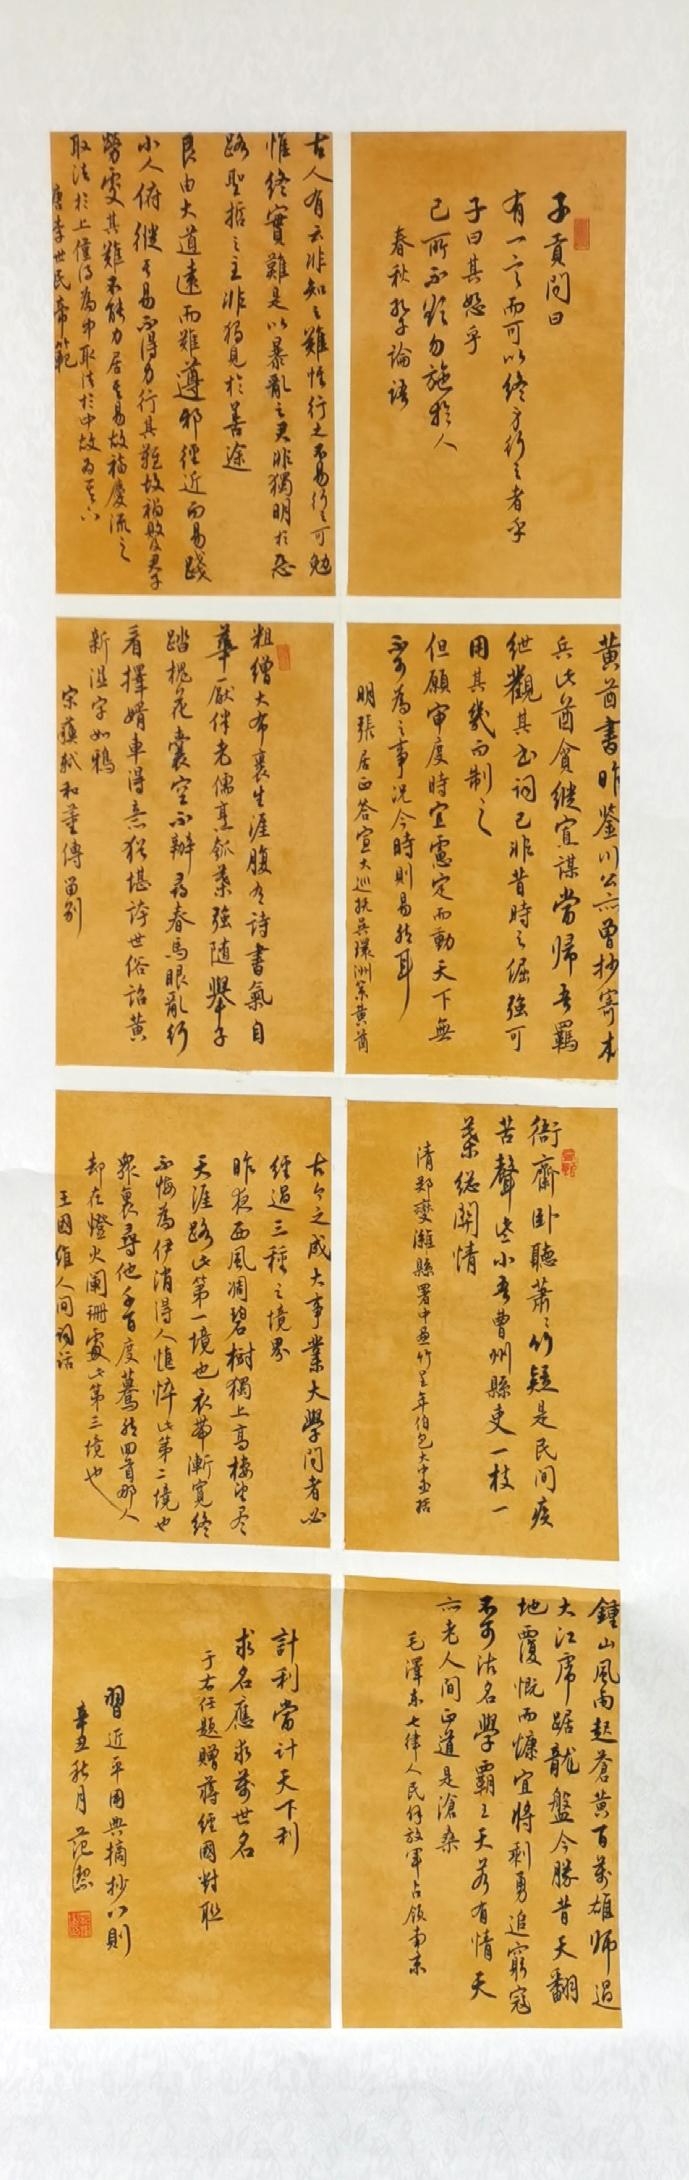 子貢問曰
有一言而可以终身行之者乎
子曰其恕乎
己所不欲勿施於人
春秋孔子論語
古人有云非知之難惟行之不易行之可勉
惟终實難是以暴亂之君非獨明於惡
路聖哲之主非獨見於善途
良由大道遠而難遵邪徑近而易踐
小人俯從其易不得力行其難故禍敗及之君子
勞處其難不能力居其易故福慶流之
取法於上僅得為中取法於中故為其下
唐李世民帝範
黄酋書昨鉴川公亦曾抄寄本
兵此酋貪縱寡謀當歸吾羈
绁觀其书词已非昔時之倔強可
用其幾而制之
但願审度時宜慮定而動天下無
不可為之事况今時則易然耳
明張居正答宣大巡抚吳環洲策黄酋
粗繒大布裹生涯腹有詩書氣自
華厭伴老儒烹瓠葉強随舉子
踏槐花囊空不辦尋春馬眼亂行
看擇婿車得意猶堪誇世俗詔黄
新湿字如鴉
宋蘇軾和董傳留别
衙齋卧聽蕭蕭竹疑是民间疾
苦聲些小吾曹州縣吏一枝一
葉總關情
清郑燮濰縣署中画竹呈年伯包大中丞括
古今之成大事業大學问者必
经過三種之境界
昨夜西風凋碧樹獨上高樓望尽
天涯路此第一境也衣带漸寬终
不悔為伊消得人憔悴此第二境也
眾裏尋他千百度驀然回首那人
却在燈火阑珊處此第三境也
王國维人间词话
鍾山風雨起蒼黄百萬雄师過
大江虎踞龍盤今勝昔天翻
地覆慨而慷宜將剩勇追窮寇
不可沽名學霸王天若有情天
亦老人间正道是滄桑
毛澤东七律人民解放軍占领南京
計利當计天下利
求名應求萬世名
于右任題赠蒋经國對联
習近平用典摘抄八則
辛丑秋月 范潔